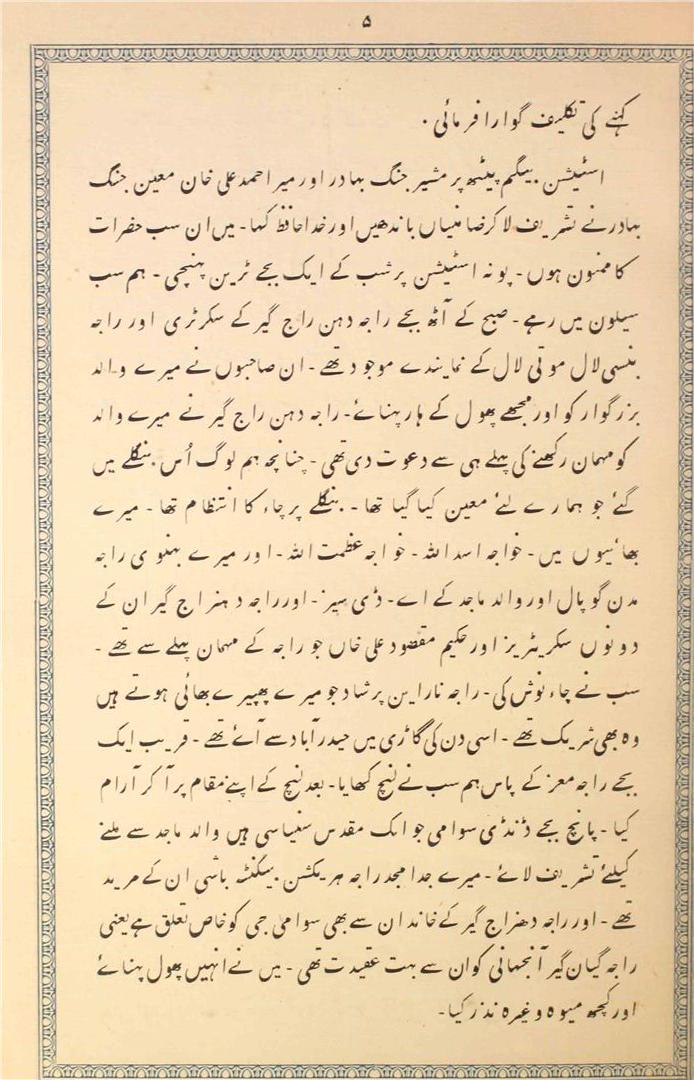 ۵
کہنے کی تکلیف گوارا فرمائی ۔
اسٹیشن بیگم پیٹھ پر مشیر جنگ بہادر اور میر احمد علی خان معین جنگ
بہادر نے تشریف لا کر ضامنیاں باندھیں اور خدا حافظ کہا۔ میں ان سب حضرات
کا ممنون ہوں۔ پونہ اسٹیشن پر شب کے ایک بجے ٹرین پہنچی۔ ہم سب
سیلون میں رہے۔ صبح کے آٹھ بجے راجہ دہن راج گیر کے سکرٹری اور راجہ
بنسی لال موتی لال کے نمایندے موجود تھے۔ ان صاحبوں نے میرے والد
بزرگوار کو اور مجھے پھول کے ہار پہنائے۔ راجہ دہن راج گیر نے میرے والد
کو مہمان رکھنے کی پہلے ہی سے دعوت دی تھی۔ چنانچہ ہم لوگ اُس بنگلے میں
گئے جو ہمارے لئے معین کیا گیا تھا۔ بنگلے پر چاء کا انتظام تھا۔ میرے
بھائیوں میں۔ خواجہ اسد اللہ۔ خواجہ عظمت اللہ۔ اور میرے بہنوی راجہ
مدن گوپال اور والد ماجد کے اے۔ ڈی سیز۔ اور راجہ دہنراج گیر ان کے
دونوں سکریٹریز اور حکیم مقصود علی خاں جو راجہ کے مہمان پہلے سے تھے۔
سب نے چاء نوش کی۔ راجہ ناراین پرشاد جو میرے پھپیرے بھائی ہوتے ہیں
وہ بھی شریک تھے۔ اسی دن کی گاڑی میں حیدرآباد سے آئے تھے۔ قریب ایک
بجے راجہ معز کے پاس ہم سب نے لنچ کھایا۔ بعد لنچ کے اپنے مقام پر آ کر آرام
کیا۔ پانچ بجے ڈنڈی سوامی جو ایک مقدس سنیاسی ہیں والد ماجد سے ملنے
کیلئے تشریف لائے۔ میرے جد امجد راجہ ہریکشن بیکنٹھ باشی ان کے مرید
تھے۔ اور راجہ دھنراج گیر کے خاندان سے بھی سوامی جی کو خاص تعلق ہے یعنی
راجہ گیان گیر آنجہانی کو ان سے بہت عقیدت تھی۔ میں نے انہیں پھول پہنائے
اور کچھ میوہ وغیرہ نذر کیا۔